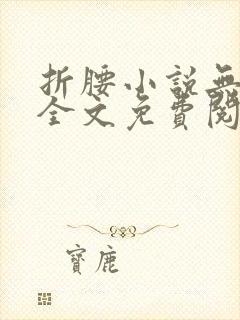 折腰小說無
全文免費閱
寶鹿